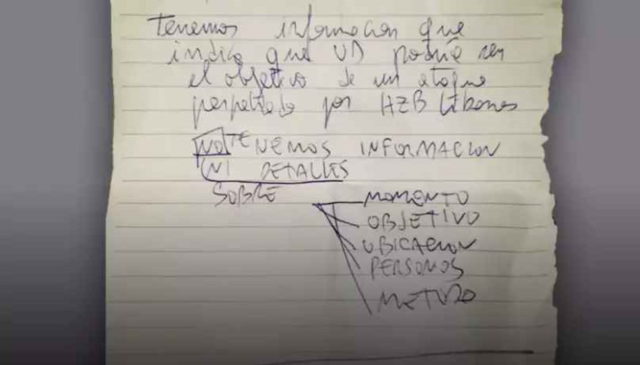 Tenemos informacion que
indica que UD podría ser
el objetivo de un ataque
perpetrado por HZB Libanes
NO TENEMOS INFORMACION
NI DETALLES
SOBRE
MOMENTO
OBJETIVO
UBICACION
PERSONAS
METODO